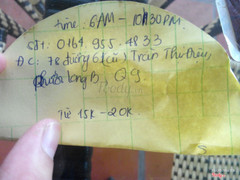 time: 6AM - 10H30PM.
SĐT: 0164.955.4833
ĐC: 78 đường 61 (cũ) Trần Thị Điệu,
Phước Long B, Q9
Từ 15k - 20k